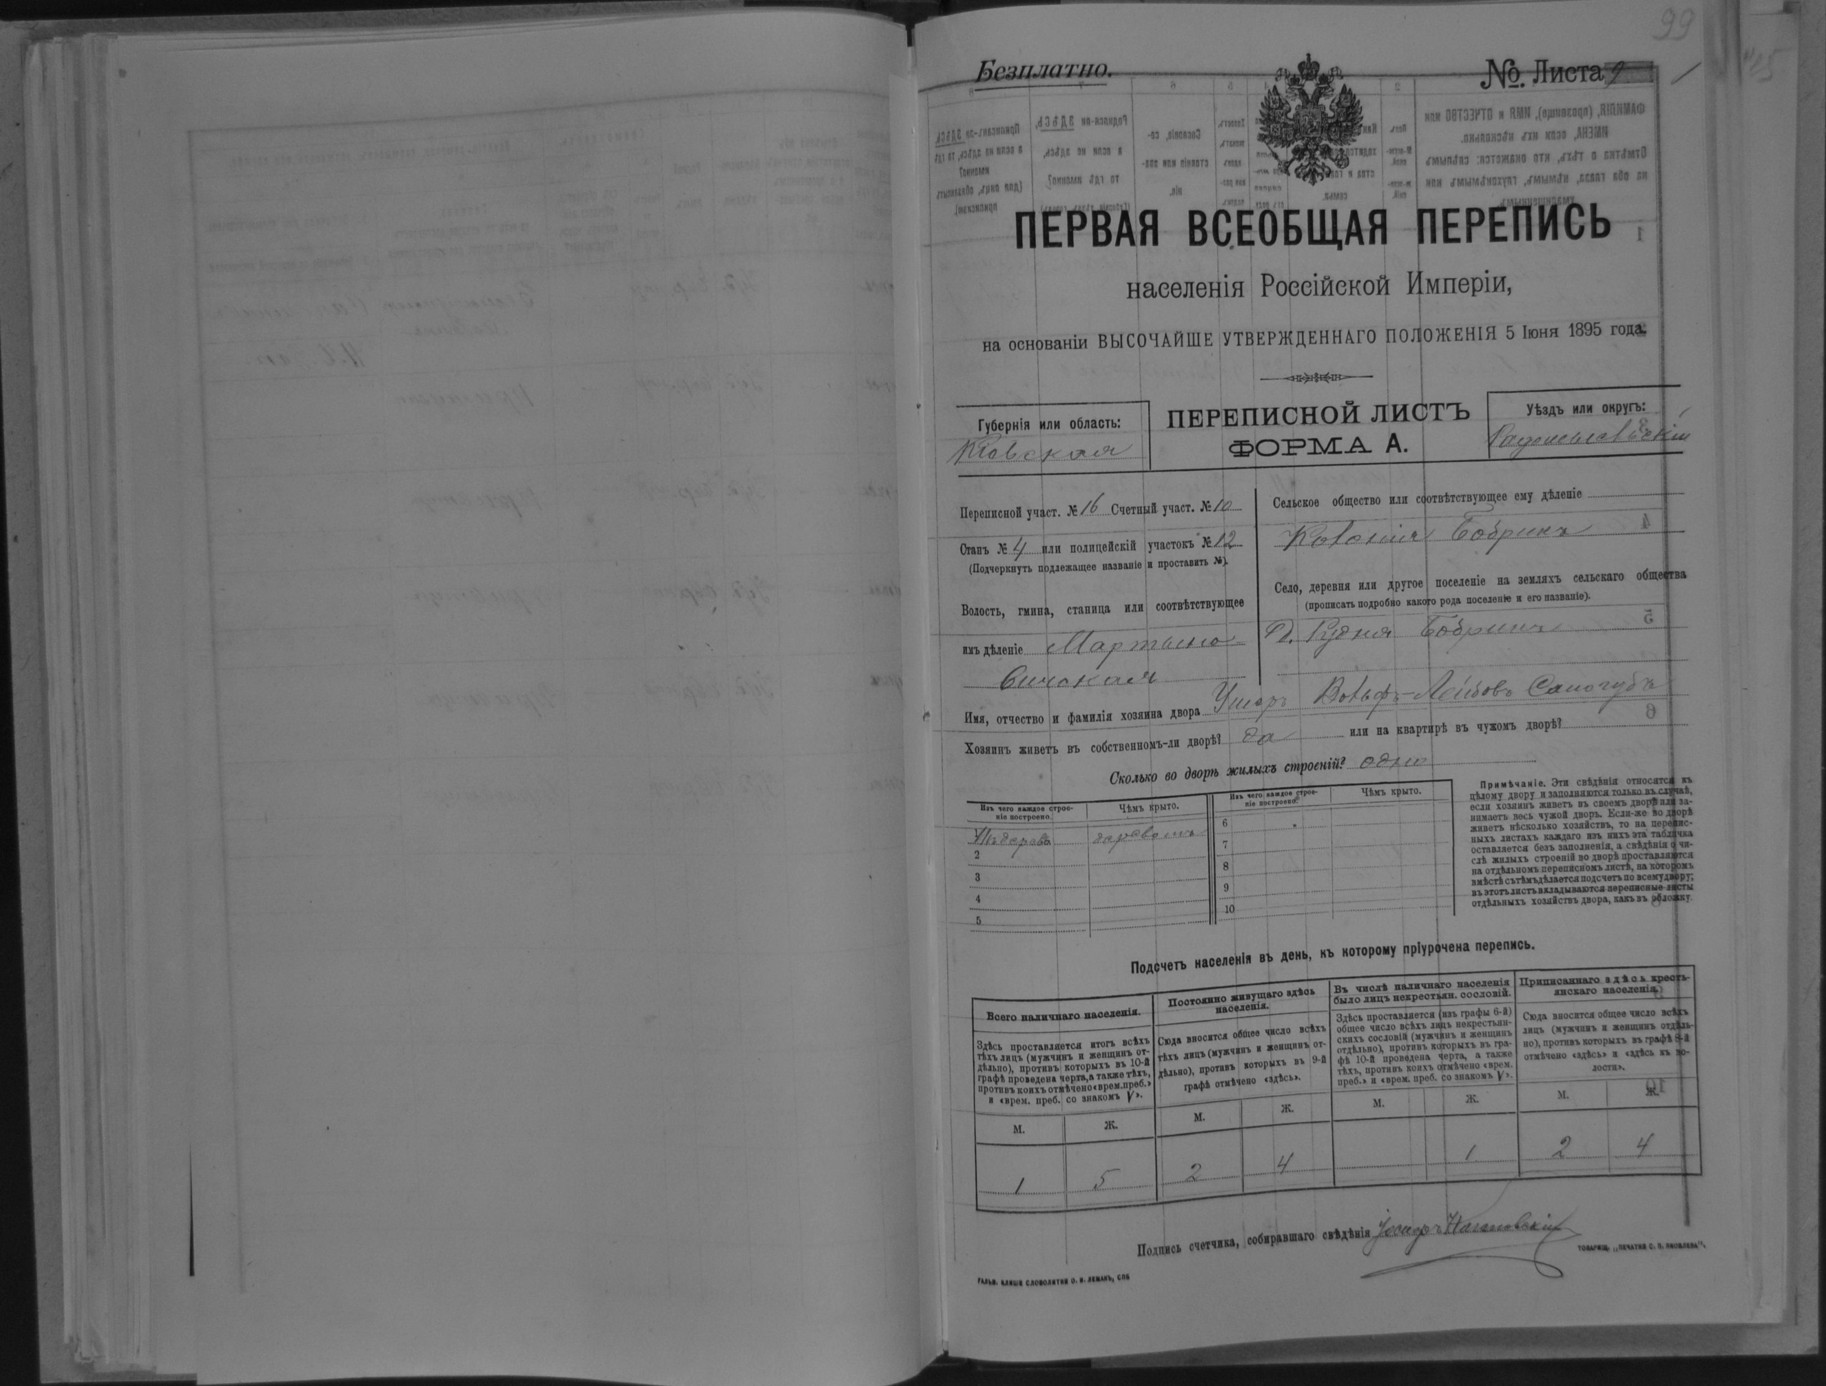 99
Безплатно.
№ Листа 9
ПЕРВАЯ ВСЕОБЩАЯ ПЕРЕПИСЬ
населенія Россійской Имперіи,
на основаніи ВЫСОЧАЙШЕ УТВЕРЖДЕННАГО ПОЛОЖЕНІЯ 5 Іюня 1895 года.
Губернія или область:
Кіевская
ПЕРЕПИСНОЙ ЛИСТЪ
ФОРМА А.
Уѣздъ или округъ:
Радомысльскій
Переписной участ. № 16 Счетный участ. № 10
Станъ № 4 или полицейскій участокъ № 12
(Подчеркнуть подлежащее названіе и проставить №).
Волость, гмина, станица или соотвѣтствующее
имъ дѣленіе Мартыно
вичская
Сельское общество или соотвѣтствующее ему дѣленіе
Колонія Бобрикъ
Село, деревня или другое поселеніе на земляхъ сельскаго общества
(прописать подробно какого рода поселеніе и его названіе).
Рудня Бобрикъ
Имя, отчество и фамилія хозяина двора Ушеръ Вольфъ-Лейбовъ
Хозяинъ живетъ въ собственномъ-ли дворѣ? да или на квартирѣ въ чужомъ дворѣ?
Сколько во дворѣ жилыхъ строеній? одно
Изъ чего каждое строеніе построено.
Чѣмъ крыто.
Изъ чего каждое строеніе построено.
Чѣмъ крыто.
2
3
4
5
6
7
8
9
10
Примѣчаніе. Эти свѣдѣнія относятся къ
цѣлому двору и заполняются только въ случаѣ,
если хозяинъ живетъ въ своемъ дворѣ или за-
нимаетъ весь чужой дворъ. Если-же во дворѣ
живетъ нѣсколько хозяйствъ, то на перепис-
ныхъ листахъ каждаго изъ нихъ эта табличка
оставляется безъ заполненія, а свѣдѣнія о чи-
слѣ жилыхъ строеній во дворѣ проставляются
на отдѣльномъ переписномъ листѣ, на которомъ
вмѣстѣ съ тѣмъ дѣлается подсчетъ по всему двору;
въ этотъ листъ вкладываются переписные листы
отдѣльныхъ хозяйствъ двора, какъ въ обложку.
Подсчетъ населенія въ день, къ которому пріурочена перепись.
Всего наличнаго населенія.
Здѣсь проставляется итогъ всѣхъ
тѣхъ лицъ (мужчинъ и женщинъ от-
дѣльно), противъ которыхъ въ 10-й
графѣ проведена черта, а также тѣхъ,
противъ коихъ отмѣчено «врем. преб.»
и «врем. преб. со знакомъ V».
Постоянно живущаго здѣсь
населенія.
Сюда вносится общее число всѣхъ
тѣхъ лицъ (мужчинъ и женщинъ от-
дѣльно), противъ которыхъ въ 9-й
графѣ отмѣчено «здѣсь».
Въ числѣ наличнаго населенія
было лицъ некрестьян. сословій.
Здѣсь проставляется (изъ графы 6-й)
общее число всѣхъ лицъ некрестьян-
скихъ сословій (мужчинъ и женщинъ
отдѣльно), противъ которыхъ въ гра-
фѣ 10-й проведена черта, а также
тѣхъ, противъ коихъ отмѣчено «врем.
преб.» и «врем. преб. со знакомъ V».
Приписаннаго здѣсь кресть-
янскаго населенія.
Сюда вносится общее число всѣхъ
лицъ (мужчинъ и женщинъ отдѣль-
но), противъ которыхъ въ графѣ 8-й
отмѣчено «здѣсь» и «здѣсь къ во-
лости».
М. Ж. М. Ж. М. Ж. М. Ж.
1 5 2 4 1 2 4
Подпись счетчика, собиравшаго свѣдѣнія
ГАЛЬВ. КЛИШЕ СЛОВОЛИТНИ О. И. ЛЕМАНЪ, СПБ
ТОВАРИЩ. „ПЕЧАТНЯ С. П. ЯКОВЛЕВА“.